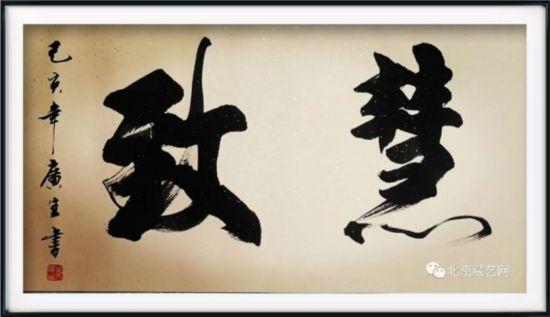 慧致
己亥年廣生書
北京藏艺网